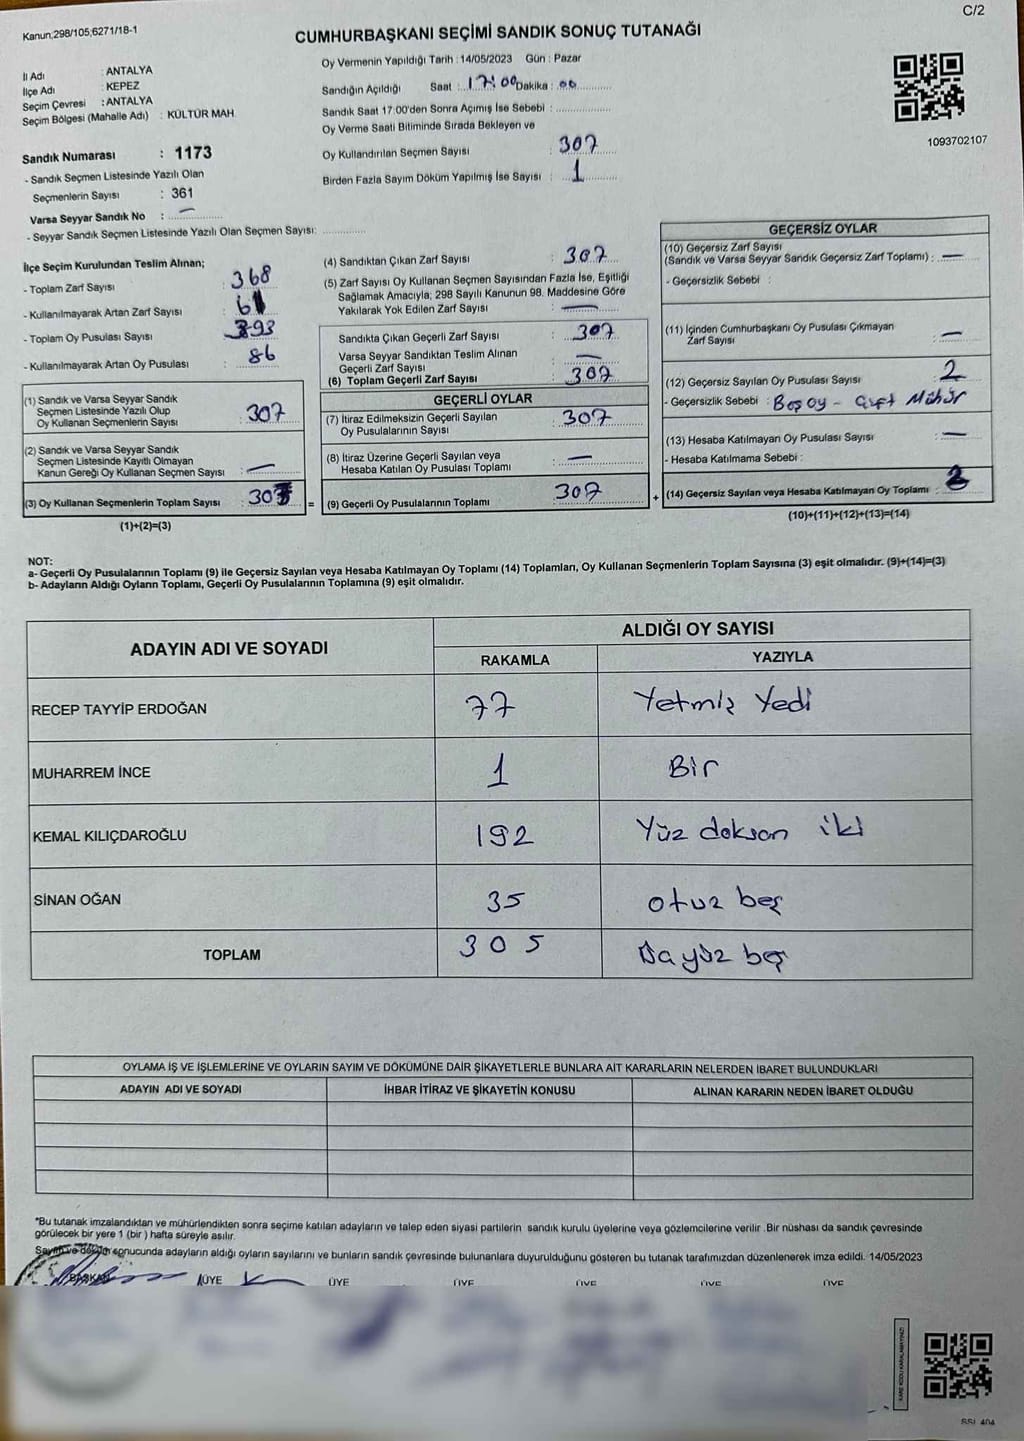 C/2
Kanun,298/105,6271/18-1
CUMHURBAŞKANI SEÇİMİ SANDIK SONUÇ TUTANAĞI
İl Adı : ANTALYA
İlçe Adı : KEPEZ
Seçim Çevresi : ANTALYA
Seçim Bölgesi (Mahalle Adı) : KÜLTÜR MAH.
Sandık Numarası : 1173
- Sandık Seçmen Listesinde Yazılı Olan
Seçmenlerin Sayısı : 361
Varsa Seyyar Sandık No : —
- Seyyar Sandık Seçmen Listesinde Yazılı Olan Seçmen Sayısı:
Oy Vermenin Yapıldığı Tarih : 14/05/2023 Gün : Pazar
Sandığın Açıldığı Saat : 17:00 Dakika : 00
Sandık Saat 17:00'den Sonra Açımış İse Sebebi :
Oy Verme Saati Bitiminde Sırada Bekleyen ve
Oy Kullandırılan Seçmen Sayısı : 307
Birden Fazla Sayım Döküm Yapılmış İse Sayısı : 1
1093702107
İlçe Seçim Kurulundan Teslim Alınan;
- Toplam Zarf Sayısı : 368
- Kullanılmayarak Artan Zarf Sayısı : 61
- Toplam Oy Pusulası Sayısı : 393
- Kullanılmayarak Artan Oy Pusulası : 86
(1) Sandık ve Varsa Seyyar Sandık
Seçmen Listesinde Yazılı Olup
Oy Kullanan Seçmenlerin Sayısı : 307
(2) Sandık ve Varsa Seyyar Sandık
Seçmen Listesinde Kayıtlı Olmayan
Kanun Gereği Oy Kullanan Seçmen Sayısı : —
(3) Oy Kullanan Seçmenlerin Toplam Sayısı : 307 =
(1)+(2)=(3)
(4) Sandıktan Çıkan Zarf Sayısı : 307
(5) Zarf Sayısı Oy Kullanan Seçmen Sayısından Fazla İse, Eşitliği
Sağlamak Amacıyla; 298 Sayılı Kanunun 98. Maddesine Göre
Yakılarak Yok Edilen Zarf Sayısı : —
Sandıkta Çıkan Geçerli Zarf Sayısı : 307
Varsa Seyyar Sandıktan Teslim Alınan
Geçerli Zarf Sayısı : —
(6) Toplam Geçerli Zarf Sayısı : 307
GEÇERLİ OYLAR
(7) İtiraz Edilmeksizin Geçerli Sayılan
Oy Pusulalarının Sayısı : 307
(8) İtiraz Üzerine Geçerli Sayılan veya
Hesaba Katılan Oy Pusulası Toplamı : —
(9) Geçerli Oy Pusulalarının Toplamı : 307 +
GEÇERSİZ OYLAR
(10) Geçersiz Zarf Sayısı
(Sandık ve Varsa Seyyar Sandık Geçersiz Zarf Toplamı) : —
- Geçersizlik Sebebi :
(11) İçinden Cumhurbaşkanı Oy Pusulası Çıkmayan
Zarf Sayısı : —
(12) Geçersiz Sayılan Oy Pusulası Sayısı : 2
- Geçersizlik Sebebi : Boş oy - Çift Mühür
(13) Hesaba Katılmayan Oy Pusulası Sayısı : —
- Hesaba Katılmama Sebebi :
(14) Geçersiz Sayılan veya Hesaba Katılmayan Oy Toplamı : 2
(10)+(11)+(12)+(13)=(14)
NOT:
a- Geçerli Oy Pusulalarının Toplamı (9) ile Geçersiz Sayılan veya Hesaba Katılmayan Oy Toplamı (14) Toplamları, Oy Kullanan Seçmenlerin Toplam Sayısına (3) eşit olmalıdır. (9)+(14)=(3)
b- Adayların Aldığı Oyların Toplamı, Geçerli Oy Pusulalarının Toplamına (9) eşit olmalıdır.
ADAYIN ADI VE SOYADI ALDIĞI OY SAYISI
RAKAMLA YAZIYLA
RECEP TAYYİP ERDOĞAN 77 Yetmiş Yedi
MUHARREM İNCE 1 Bir
KEMAL KILIÇDAROĞLU 192 Yüz doksan iki
SİNAN OĞAN 35 otuz beş
TOPLAM 305 yüz beş
OYLAMA İŞ VE İŞLEMLERİNE VE OYLARIN SAYIM VE DÖKÜMÜNE DAİR ŞİKAYETLERLE BUNLARA AİT KARARLARIN NELERDEN İBARET BULUNDUKLARI
ADAYIN ADI VE SOYADI İHBAR İTİRAZ VE ŞİKAYETİN KONUSU ALINAN KARARIN NEDEN İBARET OLDUĞU
*Bu tutanak imzalandıktan ve mühürlendikten sonra seçime katılan adayların ve talep eden siyasi partilerin sandık kurulu üyelerine veya gözlemcilerine verilir .Bir nüshası da sandık çevresinde
görülecek bir yere 1 (bir ) hafta süreyle asılır.
Sayım ve döküm sonucunda adayların aldığı oyların sayılarını ve bunların sandık çevresinde bulunanlara duyurulduğunu gösteren bu tutanak tarafımızdan düzenlenerek imza edildi. 14/05/2023
BAŞKAN ÜYE ÜYE ÜYE ÜYE ÜYE ÜYE
KARE KODU KARALAMAYINIZ!